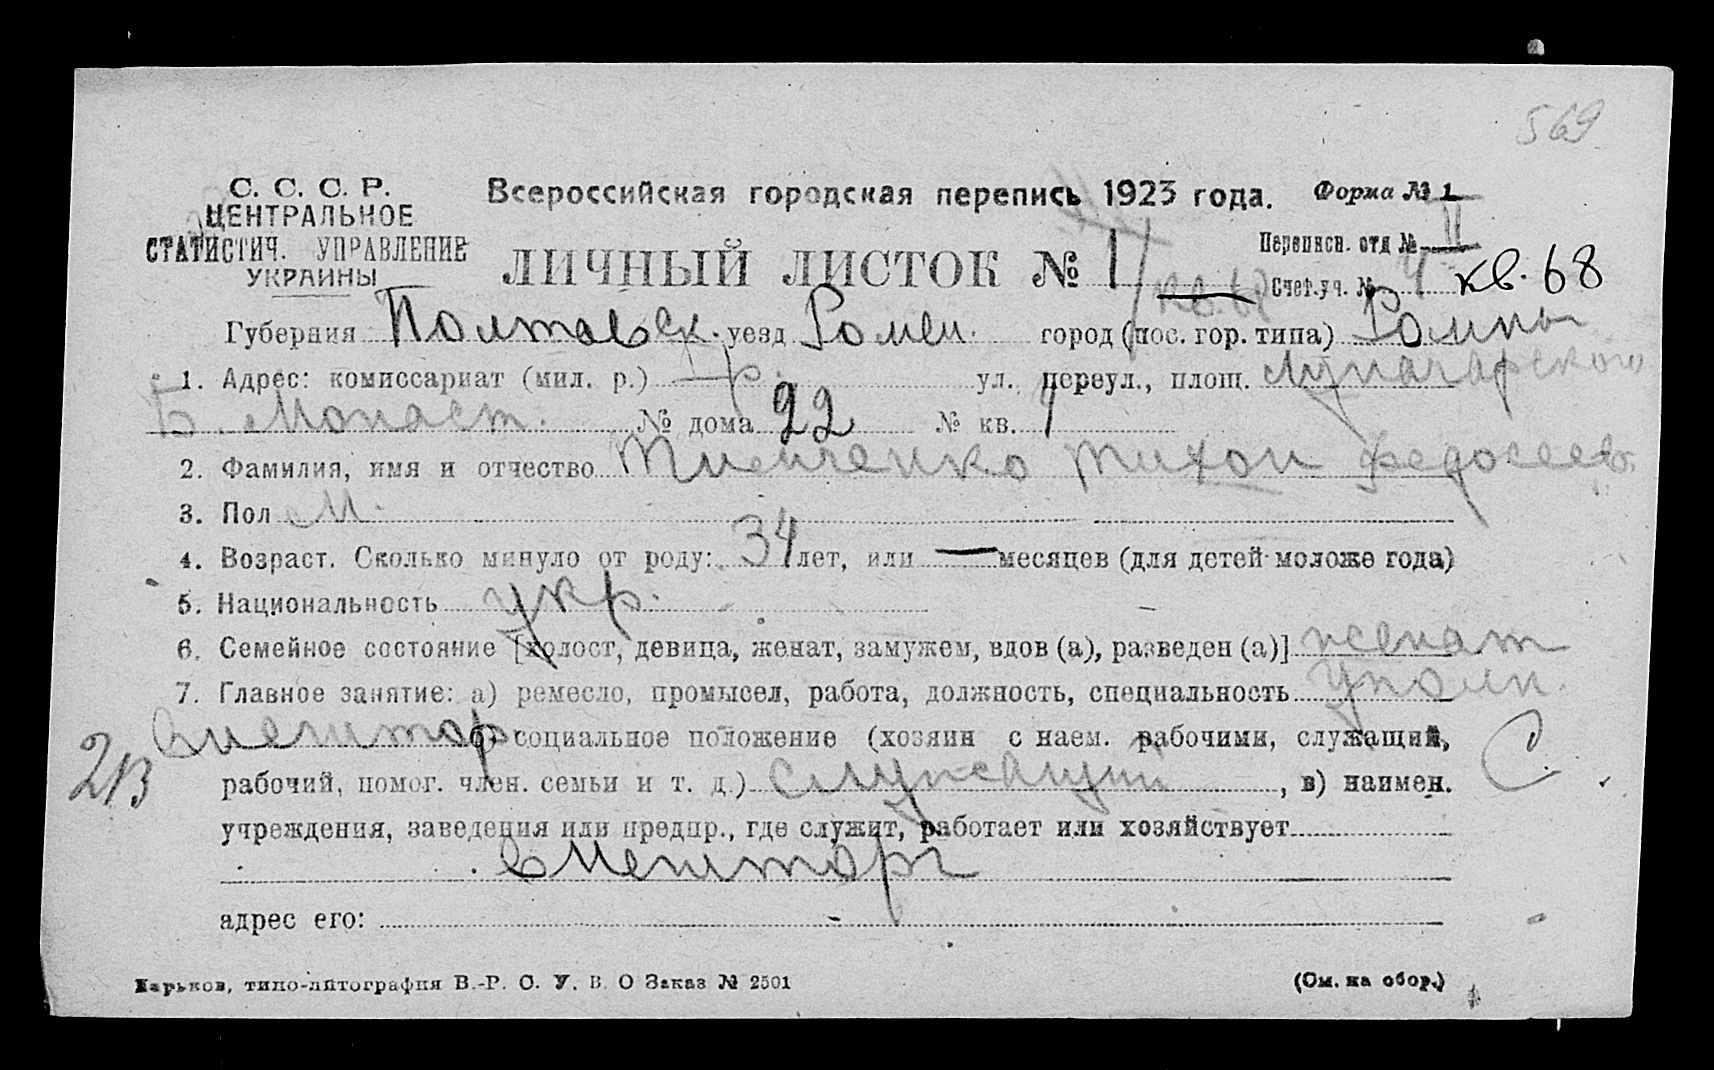 569
С. С. С. Р.
ЦЕНТРАЛЬНОЕ
СТАТИСТИЧ. УПРАВЛЕНИЕ
УКРАИНЫ
Всероссийская городская перепись 1923 года.
Форма № 1
ЛИЧНЫЙ ЛИСТОК № 1
Переписн. отд № II
Счет.уч. № 4 кв. 68
Губерния Полтавск. уезд Ромен. город (пос. гор. типа) Ромны
1. Адрес: комиссариат (мил. р.) ул. переул., площ. Луначарского
Б. Монаст. № дома 22 № кв. 1
2. Фамилия, имя и отчество Тихон Федосеев.
3. Пол М.
4. Возраст. Сколько минуло от роду: 34 лет, или — месяцев (для детей моложе года)
5. Национальность укр.
6. Семейное состояние [холост, девица, женат, замужем, вдов (а), разведен (а)] женат
7. Главное занятие: а) ремесло, промысел, работа, должность, специальность Уполн.
Внешторг б) социальное положение (хозяин с наем. рабочими, служащий,
рабочий, помог. член. семьи и т. д.) служащий , в) наимен.
учреждения, заведения или предпр., где служит, работает или хозяйствует
Внешторг
адрес его:
Харьков, типо-литография В.-Р. С. У. В. О Заказ № 2501
(См. на обор.)